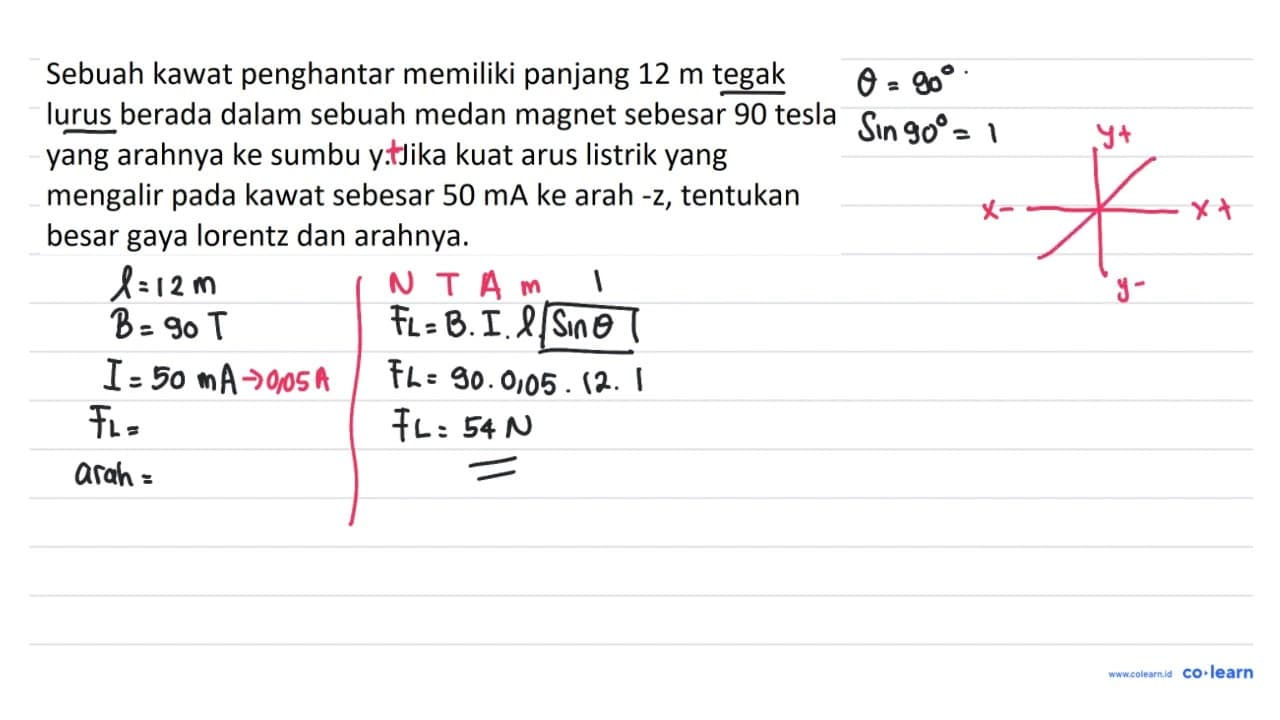 Sebuah kawat penghantar memiliki panjang 12 m tegak
lurus berada dalam sebuah medan magnet sebesar 90 tesla
yang arahnya ke sumbu y.+Jika kuat arus listrik yang
mengalir pada kawat sebesar 50 mA ke arah -z, tentukan
besar gaya lorentz dan arahnya.
θ = 90°
Sin 90° = 1
y+
x-
x+
y-
l = 12 m
B = 90 T
I = 50 mA → 0,05 A
FL =
arah =
N T A m 1
FL = B. I. l. Sin θ
FL = 90. 0,05. 12. 1
FL = 54 N
www.colearn.id co·learn